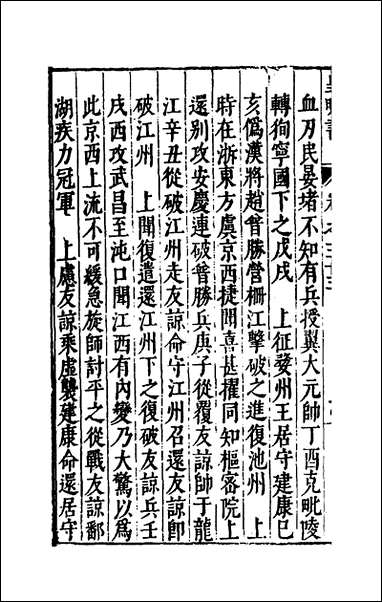 血刃民晏堵不知有兵授翼大元帥丁酉克毗陵
轉狥寧國下之戊戌　上征婺州王居守建康已
亥僞漢將趙普勝營柵江擊破之進復池州　上
時在浙東方虞京西捷聞喜甚擢同知樞密院上
還别攻安慶連破普勝兵庚子從覆友諒師于龍
江辛丑從破江州走友諒命守江州召還友諒卽
破江州　上聞復遣還江州下之復破友諒兵壬
戌西攻武昌至沌口聞江西有內變乃大驚以爲
此京西上流不可緩急旋師討平之從戰友諒鄱
湖疾力冠軍　上慮友諒乘虛襲建康命還居守